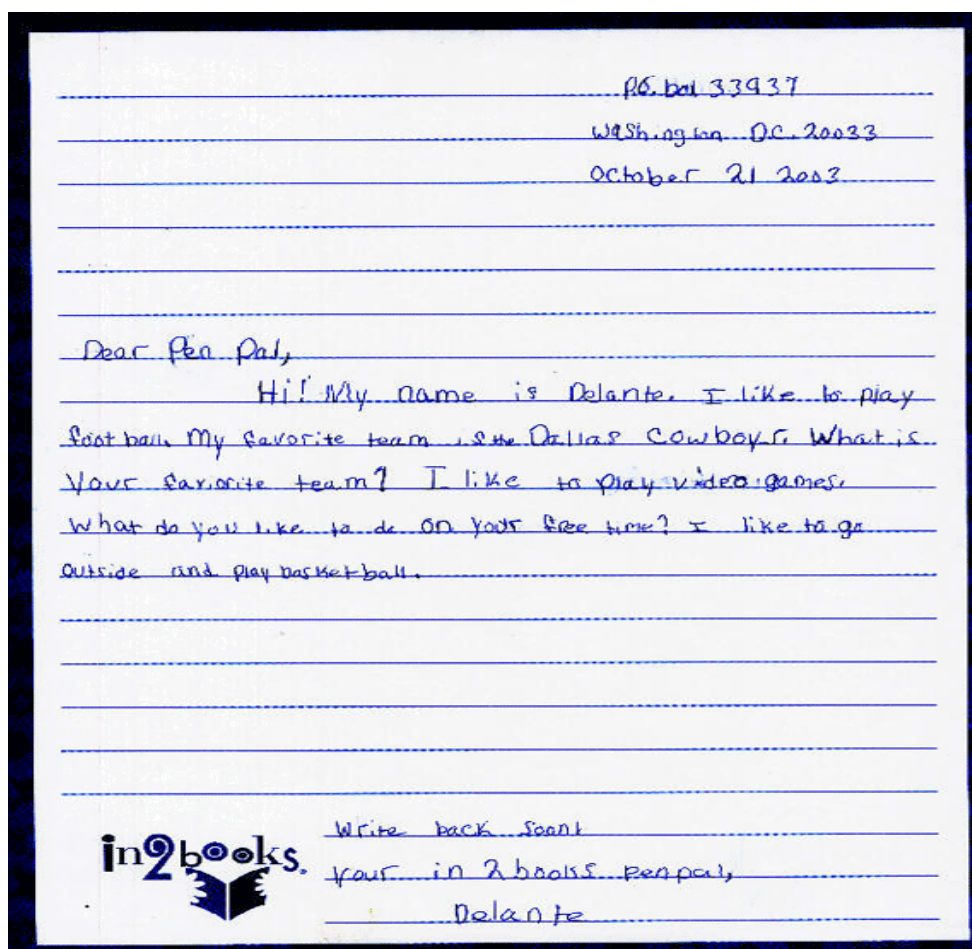 P.O. box 33937
Washington D.C. 20033
October 21 2003
Dear Pen Pal,
Hi! My name is Delante. I like to play
football. My favorite team is the Dallas Cowboys. What is
Your favorite team? I like to play video games.
What do you like to do on your free time? I like to go
outside and play basketball.
Write back soon!
Your in 2 books penpal,
Delante
in2books.